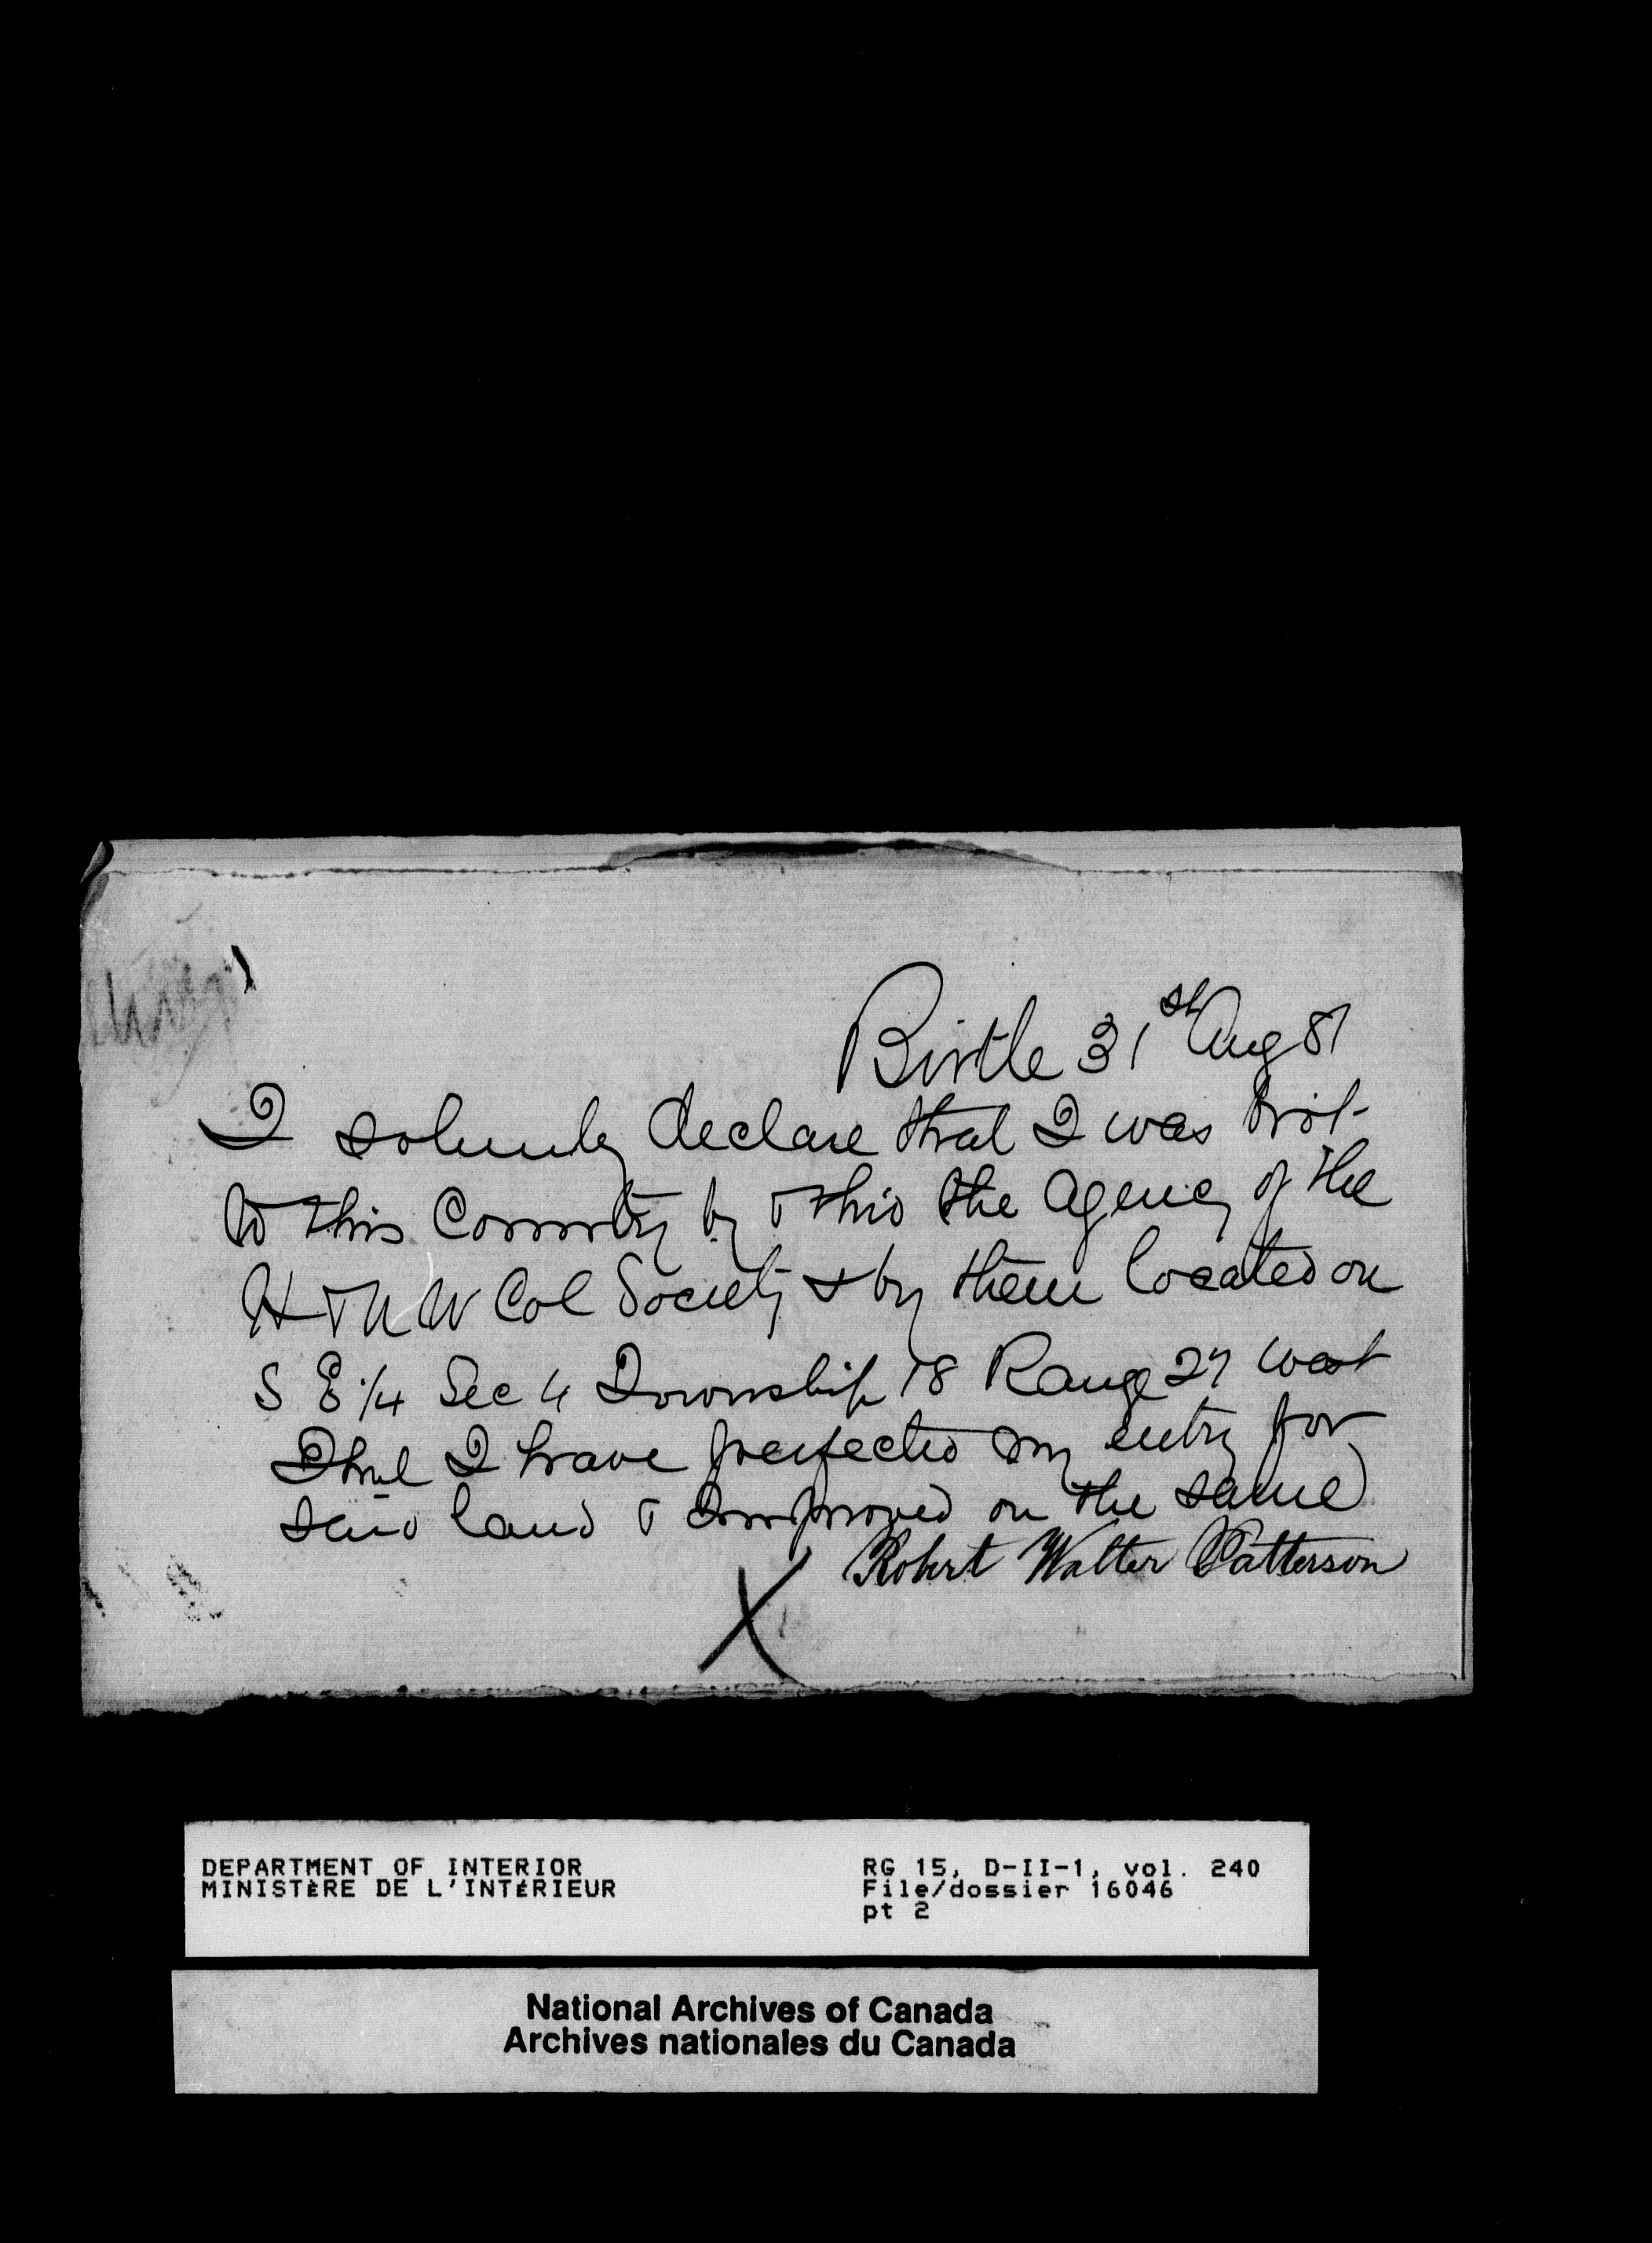 Birtle 31st Aug 81
I solemnly declare that I was brot
to this Country by & thro the Agency of the
H & N W Col Society & by them located on
S E 1/4 Sec 4 Township 18 Range 27 West
That I have perfected my entry for
said land & improved on the same
Robert Walter Patterson
X
DEPARTMENT OF INTERIOR
MINISTÈRE DE L'INTÉRIEUR
RG 15, D-II-1, vol. 240
File/dossier 16046
pt 2
National Archives of Canada
Archives nationales du Canada